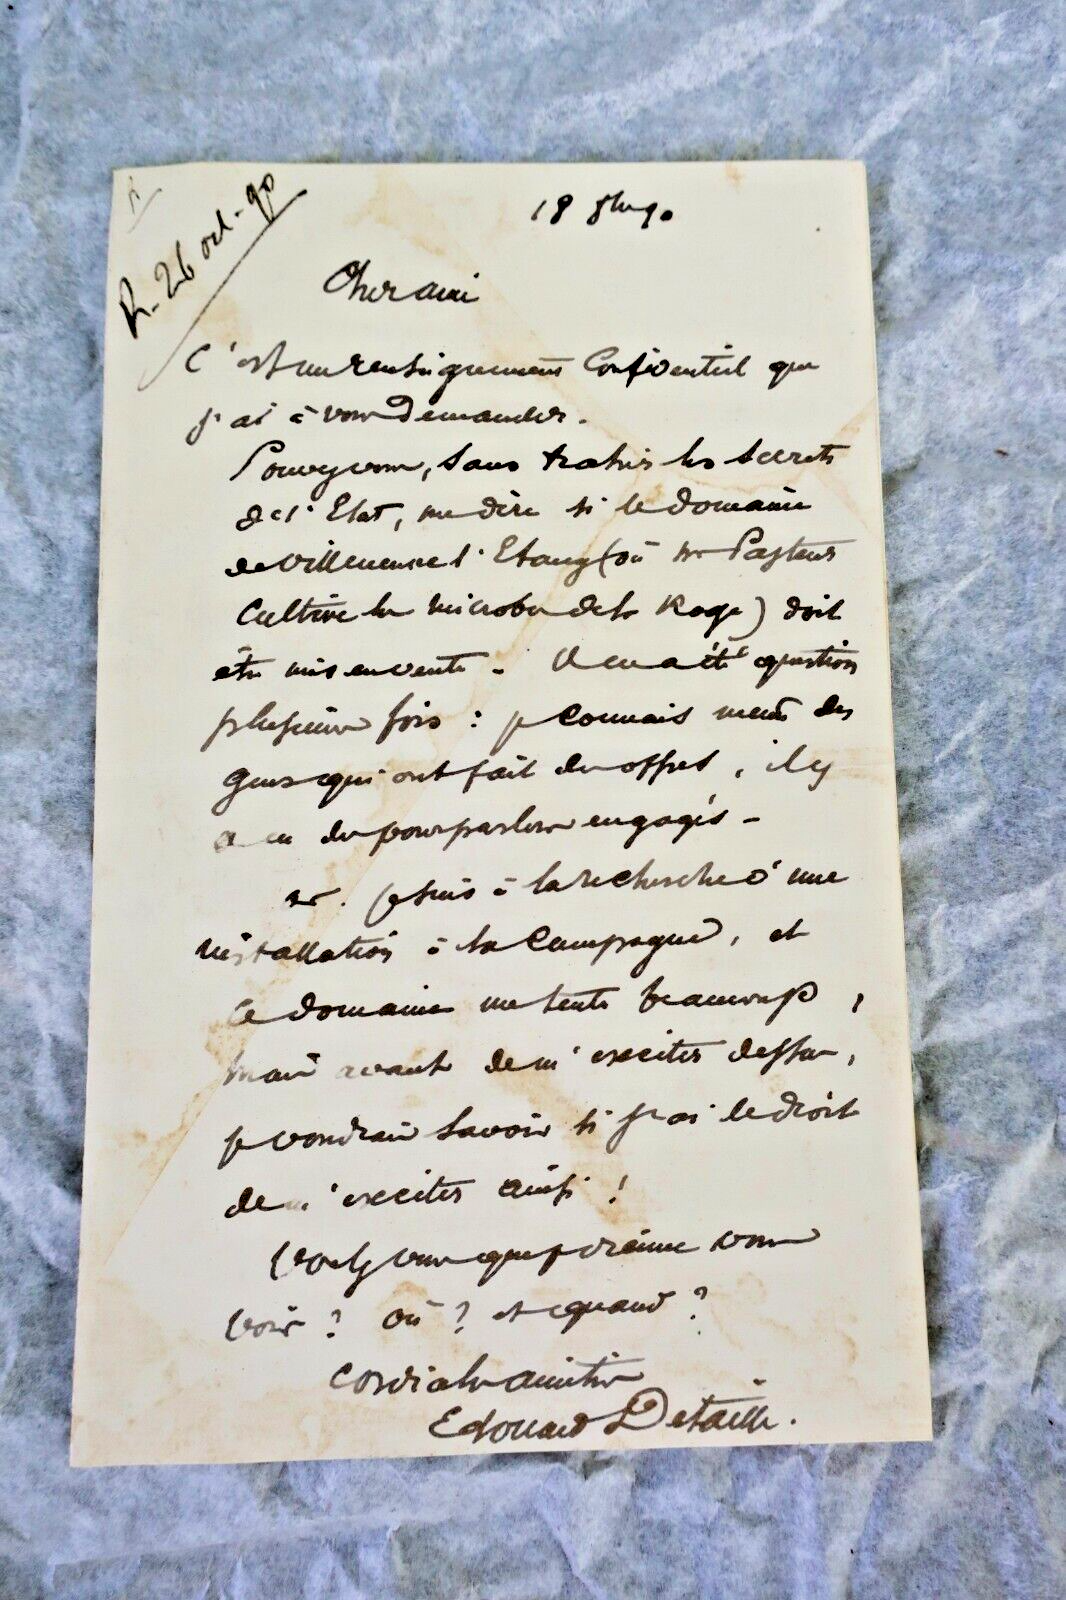 R. 26 oct. 90
18 8bre 90
Cher ami
C'est un renseignement Confidentiel que
j'ai à vous Demander.
Pouvez vous, sans trahir les secrets
de l'Etat, me dire si le domaine
de Villeneuve l'Etang (où Mr Pasteur
Cultive les microbes de la Rage) doit
être mis en vente. Il en a été question
plusieurs fois : je connais même des
gens qui ont fait des offres, il y
a eu des pourparlers engagés -
Je suis à la recherche d'une
installation à la Campagne, et
ce domaine me tente beaucoup,
mais avant de m'exciter dessus,
je voudrais savoir si j'ai le droit
de m'exciter ainsi !
Voulez vous que je vienne vous
voir ? où ? et quand ?
Cordiales amitiés
Edouard Detaille.